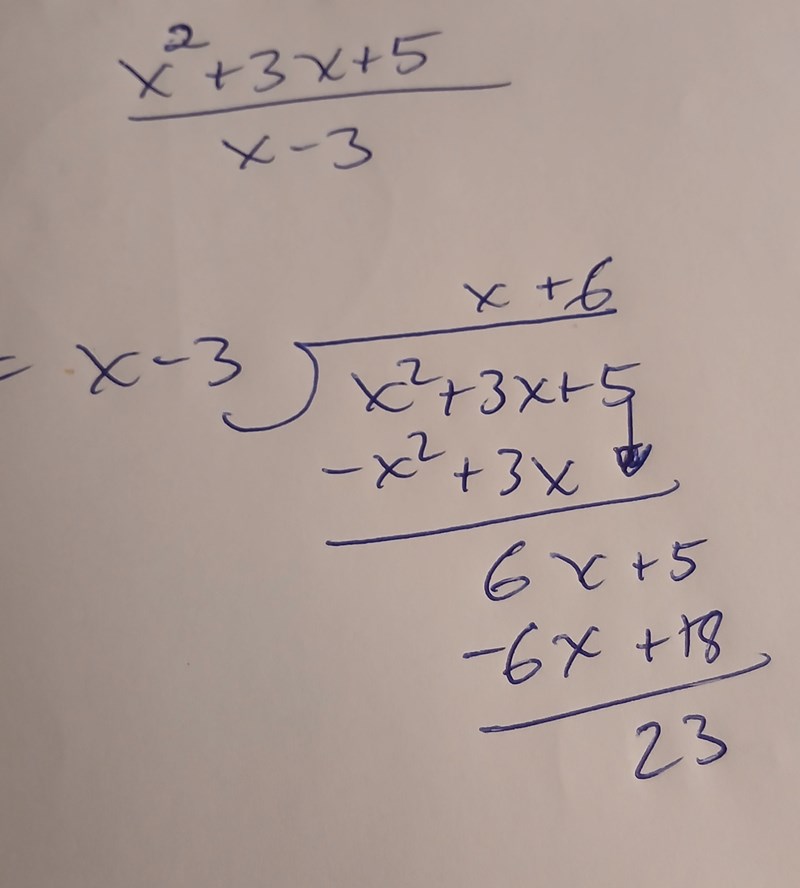 x²+3x+5
x-3
x+6
= x-3 x²+3x+5
-x²+3x
6x+5
-6x+18
23